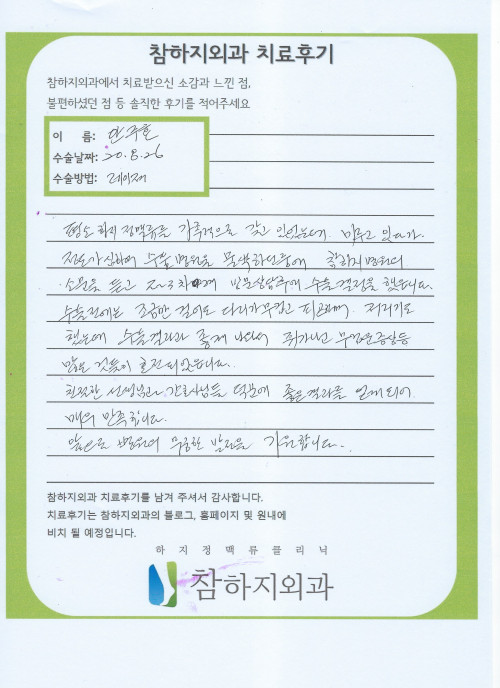 참하지외과 치료후기
참하지외과에서 치료받으신 소감과 느낀 점,
불편하셨던 점 등 솔직한 후기를 적어주세요
이 름: 안주호
수술날짜: 20.8.26
수술방법: 레이저
평소 하지 정맥류를 가족적으로 갖고 있었는데. 미루고 있다가.
정도가 심하여 수술 병원을 물색하던중에 참하지병원의
소문을 듣고 2~3차례 방문상담후에 수술결정을 했습니다.
수술전에는 조금만 걸어도 다리가 무겁고 피곤하며. 저리기도
했는데 수술결과가 좋게 나와서 쥐가나고 무거운증상등
많은 것들이 호전되었습니다.
친절한 선생님과 간호사님들 덕분에 좋은결과를 얻게되어.
매우 만족합니다.
앞으로 병원의 무궁한 발전을 기원합니다.
참하지외과 치료후기를 남겨 주셔서 감사합니다.
치료후기는 참하지외과의 블로그, 홈페이지 및 원내에
비치 될 예정입니다.
하지정맥류클리닉
참하지외과